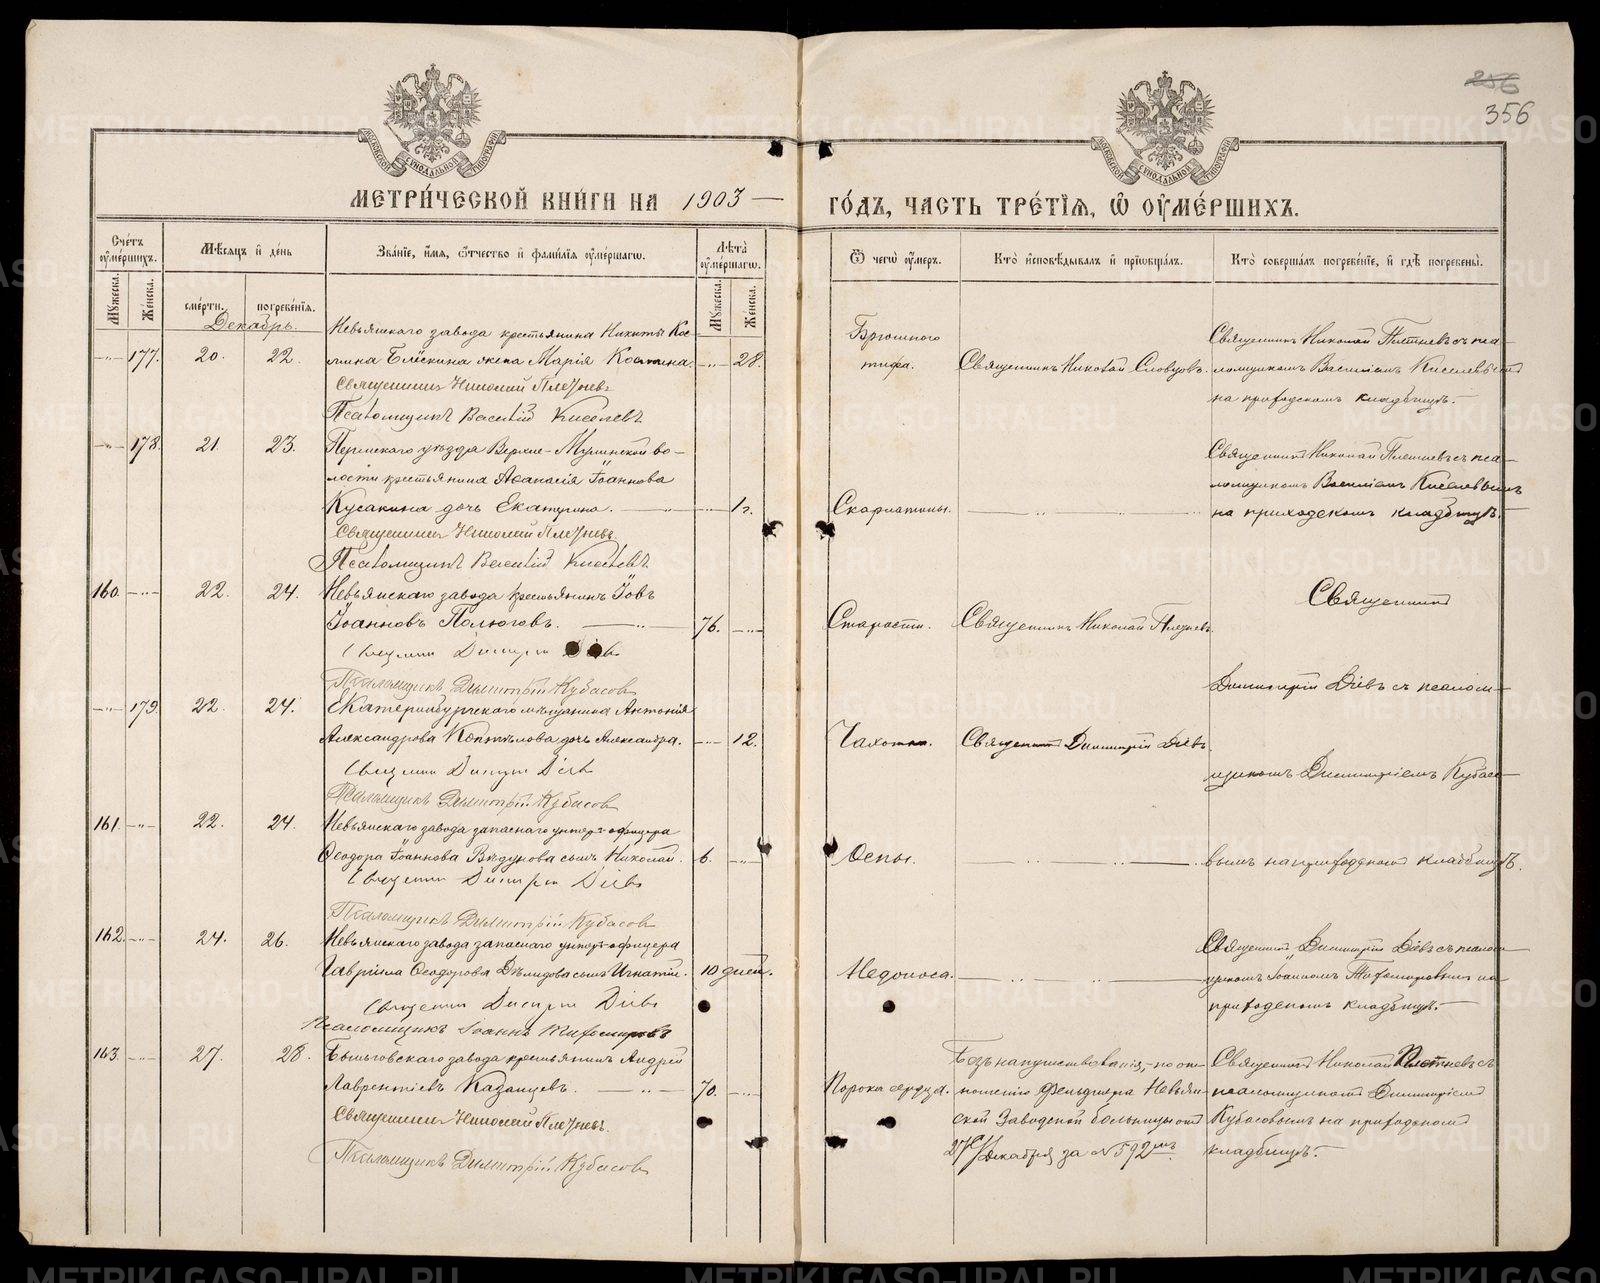 256
356
МОСКОВСКОЙ СѴНОДАЛЬНОЙ ТИПОГРАФІИ
МОСКОВСКОЙ СѴНОДАЛЬНОЙ ТИПОГРАФІИ
МЕТРИ́ЧЕСКОЙ КНИ́ГИ НА 1903 —
ГО́ДЪ, ЧАСТЬ ТРЕ́ТІѦ, Ѿ ОУМЕ́РШИХЪ.
Сче́тъ оуме́ршихъ.
Мѣ́сѧцъ и де́нь
Зва́нїе, и́мѧ, ѻ́тчество и фами́лїѧ оуме́ршагѡ.
Лѣта̀ оуме́ршагѡ.
Мꙋжеска.
Же́нска.
сме́рти.
погребе́нїѧ.
Мꙋжеска.
Же́нска.
Ѿ чегѡ̀ оу́меръ.
Кто̀ и́сповѣ́дывалъ и прїѡбща́лъ.
Кто̀ соверша́лъ погребе́нїе, и гдѣ̀ погребены̀.
Декабрь.
177. 20. 22.
Невьянскаго завода крестьянина Никиты Кос-
мина Блёскина жена Марія Космина. 28.
Священникъ Николай Плетневъ
Псаломщикъ Василій Киселевъ
Брюшного
тифа.
Священникъ Николай Словцовъ.
Священникъ Николай Плетневъ съ пса-
ломщикомъ Василіемъ Киселевымъ
на приходскомъ кладбищѣ.
178. 21. 23.
Пермскаго уѣзда Верхне-Муллинской во-
лости крестьянина Аѳанасія Іоаннова
Кусакина дочь Екатерина. 1 г.
Священникъ Николай Плетневъ.
Псаломщикъ Василій Киселевъ
Скарлатины.
Священникъ Николай Плетневъ съ пса-
ломщикомъ Василіемъ Киселевымъ
на приходскомъ кладбищѣ.
160. 22. 24.
Невьянскаго завода крестьянинъ Іовъ
Іоанновъ Полюговъ. 76.
Священникъ Димитрій Діевъ
Псаломщикъ Димитрій Кубасовъ
Старости.
Священникъ Николай Плетневъ.
Священникъ
179. 22. 24.
Екатеринбургскаго мѣщанина Антонія
Александрова Коптѣлова дочь Александра. 12.
Священникъ Димитрій Діевъ
Псаломщикъ Димитрій Кубасовъ
Чахотки.
Священникъ Димитрій Діевъ
Димитрій Діевъ съ псалом-
щикомъ Димитріемъ Кубасо-
161. 22. 24.
Невьянскаго завода запаснаго унтеръ-офицера
Ѳеодора Іоаннова Вѣдунова сынъ Николай. 6.
Священникъ Димитрій Діевъ
Псаломщикъ Димитрій Кубасовъ
Оспы.
вымъ на приходскомъ кладбищѣ.
162. 24. 26.
Невьянскаго завода запаснаго унтеръ-офицера
Гавріила Ѳеодорова Демидова сынъ Игнатій. 10 дней.
Священникъ Димитрій Діевъ
Псаломщикъ Іоаннъ Тихомировъ
Недоноса.
Священникъ Димитрій Діевъ съ псалом-
щикомъ Іоанномъ Тихомировымъ на
приходскомъ кладбищѣ.
163. 27. 28.
Быньговскаго завода крестьянинъ Андрей
Лаврентіевъ Казанцевъ. 70.
Священникъ Николай Плетневъ.
Псаломщикъ Димитрій Кубасовъ
Порока сердца.
Безъ напутствованія, - по от-
ношенію Фельдшера Невьян-
ской Заводской больницы отъ
27го Декабря за № 592мъ.
Священникъ Николай Плетневъ съ
псаломщикомъ Димитріемъ
Кубасовымъ на приходскомъ
кладбищѣ.
METRIKI.GASO-URAL.RU